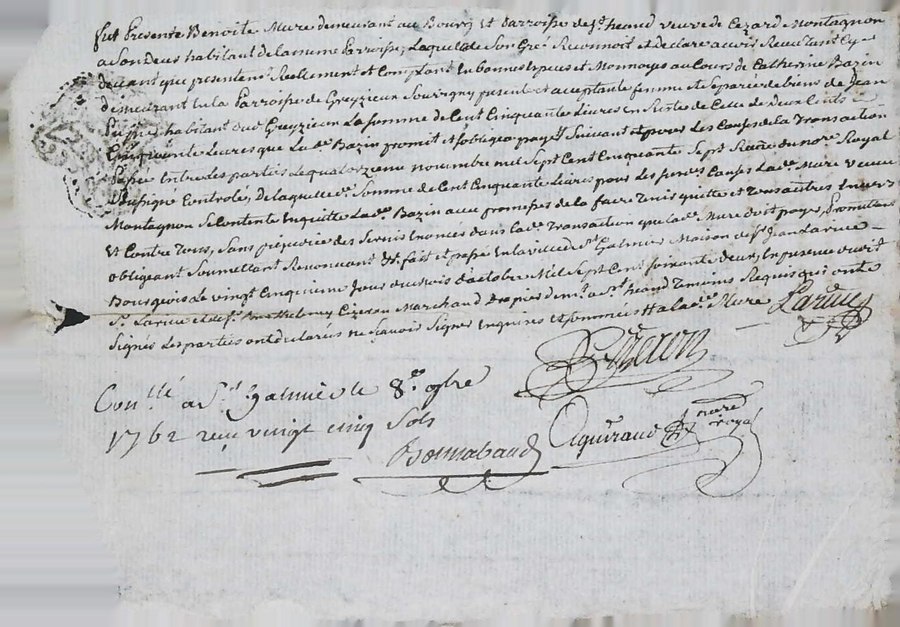 fut Presente Benoite Mure demeurant au Bourg et Parroisse de St. heand veuve de Cezard Montagnon
a Son deces habitant de la meme Parroisse, Laquelle de Son Gré Reconnoit et declare avoir Receu tant Cy
devant que presentemt. Reellement et Comptant En bonnes Especes et Monnoyes au Cours de Catherine Bazin
demeurant En la Parroisse de Greyzieux Souvigny presente et acceptante femme et Separée de biens de Jean
habitant dud. Greyzieux La Somme de Cent Cinquante Livres En Restes de Celle de deux Cents
Cinquante Livres que Lade. Bazin promit et s'obligea payer Suivant et pour Les Causes de la Transaction
Passée Entre les parties Le quatorzeme novembre mil Sept Cent Cinquante Sept Reçüe du nore. Royal
Soussigné Controlée, de laquelle de. Somme de Cent Cinquante Livres pour les Susdes. Causes Lade. Mure veuve
Montagnon Se Contente En quitte Lade. Bazin avec promesses de la faire tenir quitte et tous autres Envers
Et Contre tous, Sans prejudice des Servis Enoncés dans lade. Transaction que lade. Mure doit payer, Promettant
obligeant Soumettant Renonçant &c. fait et passé En la ville de St. Galmier Maison de Sr. Jean Larue
Bourgeois Le vingt Cinquieme Jour du mois d'octobre Mil Sept Cent Soixante deux, En presence dudit
Sr. Larue et de Sr. Barthelemy Cizeron Marchand Drapier demt. a St. heand Temoins Requis qui ont
Signés Les parties ont declarés ne Sçavoir Signer Enquises et Sommées Ha lade. Mure
Larue
Cizeron
Conllé a St. galmier le 8e. 9bre
1762 reçu vingt cinq Sols
Bonnabaud
Aguiraud nore royal